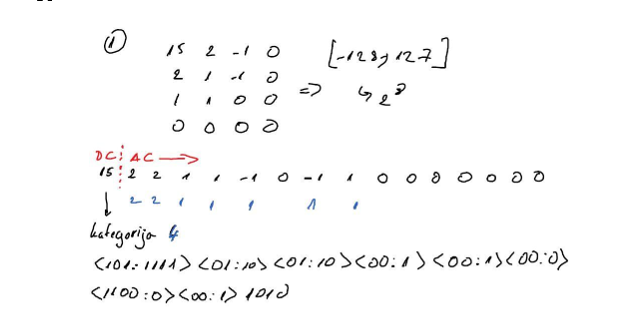 ①
15 2 -1 0 [-128, 127]
2 1 -1 0
1 1 0 0 => ↳ 2⁸
0 0 0 0
DC AC →
15 2 2 1 1 -1 0 -1 1 0 0 0 0 0 0 0
↓ 2 2 1 1 1 1 1
kategorija 4
<101:1111> <01:10> <01:10> <00:1> <00:1> <00:0>
<1100:0> <00:1> 1010